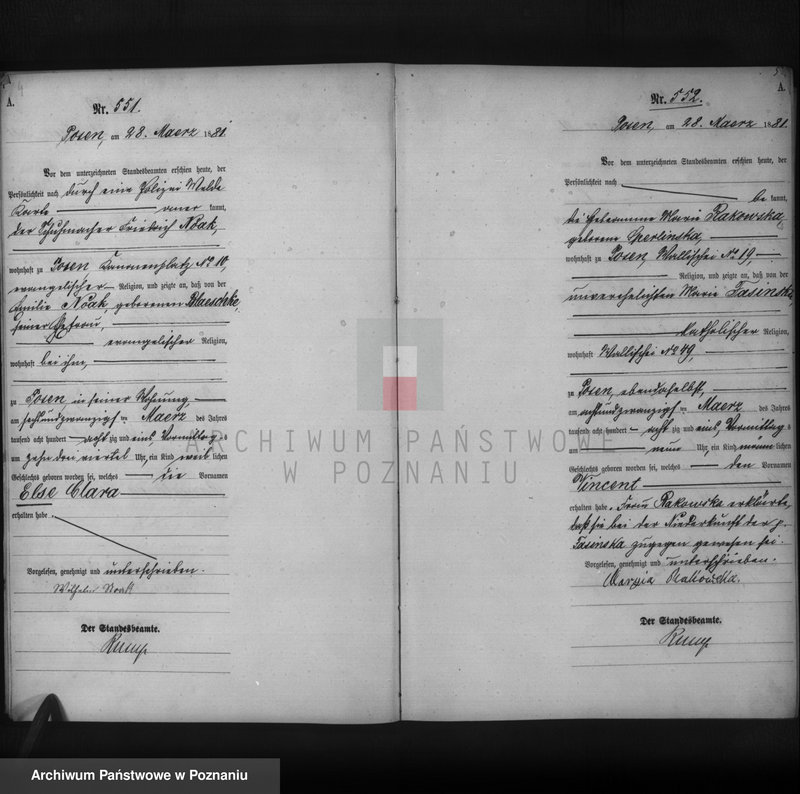 A.
Nr. 551.
Posen, am 28. Maerz 1881
Vor dem unterzeichneten Standesbeamten erschien heute, der
Persönlichkeit nach durch eine Polizei Melde
Karte aner kannt,
der Schuhmacher Friedrich Noak,
wohnhaft zu Posen Kanonenplatz No 10,
evangelischer Religion, und zeigte an, daß von der
Emilie Noak, geborenen Blaeschke,
seiner Ehefrau,
evangelischer Religion,
wohnhaft bei ihm,
zu Posen in seiner Wohnung
am sechsundzwanzigsten Maerz des Jahres
tausend acht hundert acht zig und eins Vormittags
um zehn drei viertel Uhr, ein Kind weib lichen
Geschlechts geboren worden sei, welches die Vornamen
Else Clara
erhalten habe.
Vorgelesen, genehmigt und unterschrieben.
Wilhelm Noak
Der Standesbeamte.
A.
Nr. 552.
Posen, am 28. Maerz 1881.
Vor dem unterzeichneten Standesbeamten erschien heute, der
Persönlichkeit nach
be kannt,
die Hebeamme Marie Rakowska
geborene Sperlinska,
wohnhaft zu Posen, Wallischei No 19,
Religion, und zeigte an, daß von der
unverehelichten Marie Jasinska,
katholischer Religion,
wohnhaft Wallischei No 49,
zu Posen, ebendaselbst,
am achtundzwanzigsten Maerz des Jahres
tausend acht hundert acht zig und eins Vormittags
um neun Uhr, ein Kind männ lichen
Geschlechts geboren worden sei, welches den Vornamen
Vincent
erhalten habe. Frau Rakowska erklärte,
daß sie bei der Niederkunft der p.
Jasinska zugegen gewesen sei.
Vorgelesen, genehmigt und unterschrieben.
Maryia Rakowska.
Der Standesbeamte.
ARCHIWUM PAŃSTWOWE
W POZNANIU
Archiwum Państwowe w Poznaniu